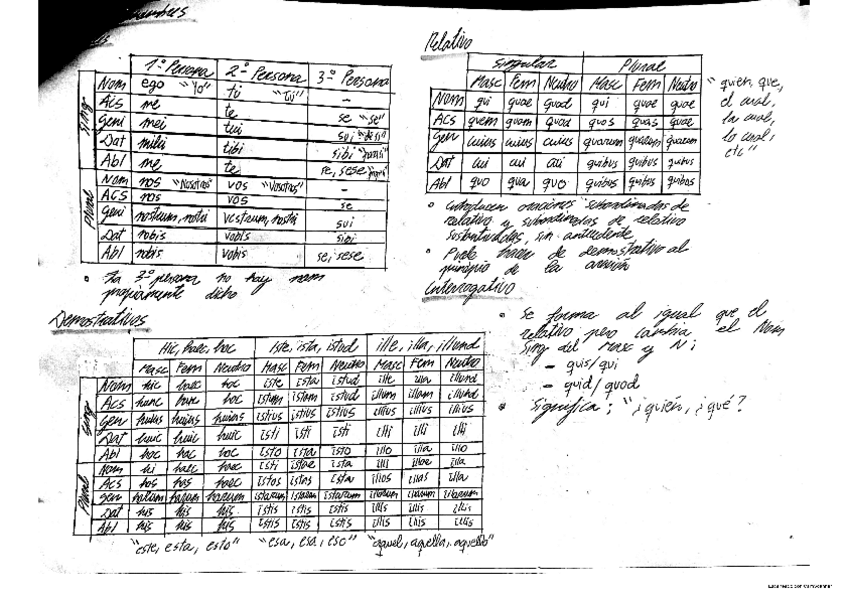 1ª Persona 2ª Persona 3ª Persona
Sing
Nom ego "Yo" tú "Tú" -
Acs me te se "se"
Geni mei tui sui
Dat mihi tibi sibi
Abl me te se, sese
Plural
Nom nos "Nosotros" vos "Vosotros" -
Acs nos vos se
Geni nostrum, nostri vestrum, sui
Dat nobis vobis sibi
Abl nobis vobis se, sese
• La 3ª persona no hay nom
propiamente dicho
Demostrativos
Hic, haec, hoc Iste, ista, istud ille, illa, illund
Masc Fem Neutro Masc Fem Neutro Masc Fem Neutro
Sing
Nom hic haec hoc iste ista istud ille illa illund
Acs hunc hanc hoc istum istam istud illum illam illund
Gen huius huius huius istius istius istius illius illius illius
Dat huic huic huic isti isti isti illi illi illi
Abl hoc hac hoc isto ista isto illo illa illo
Plural
Nom hi hae haec isti istae ista illi illae illa
Acs hos has haec istos istas ista illos illas illa
Gen horum harum horum istorum istarum istorum illorum illarum illorum
Dat his his his istis istis istis illis illis illis
Abl his his his istis istis istis illis illis illis
"este, esta, esto" "esa, esa, eso" "aquel, aquella, aquello"
Relativo
Singular Plural
Masc Fem Neutro Masc Fem Neutro
Nom qui quae quod qui quae quae
Acs quem quam quod quos quas quae
Gen cuius cuius cuius quorum quarum quorum
Dat cui cui cui quibus quibus quibus
Abl quo qua quo quibus quibus quibus
"quien, que,
el cual,
la cual,
lo cual,
etc"
• introducen oraciones subordinadas de
relativo y subordinadas de relativo
sustantivadas, sin antecedente,
• Puede hacer de demostrativo al
principio de la oración
Interrogativo
• Se forma al igual que el
relativo pero cambia el Nom
Sing del Masc y N:
- quis/qui
- quid/quod
• Significa: "¿quién, ¿qué?